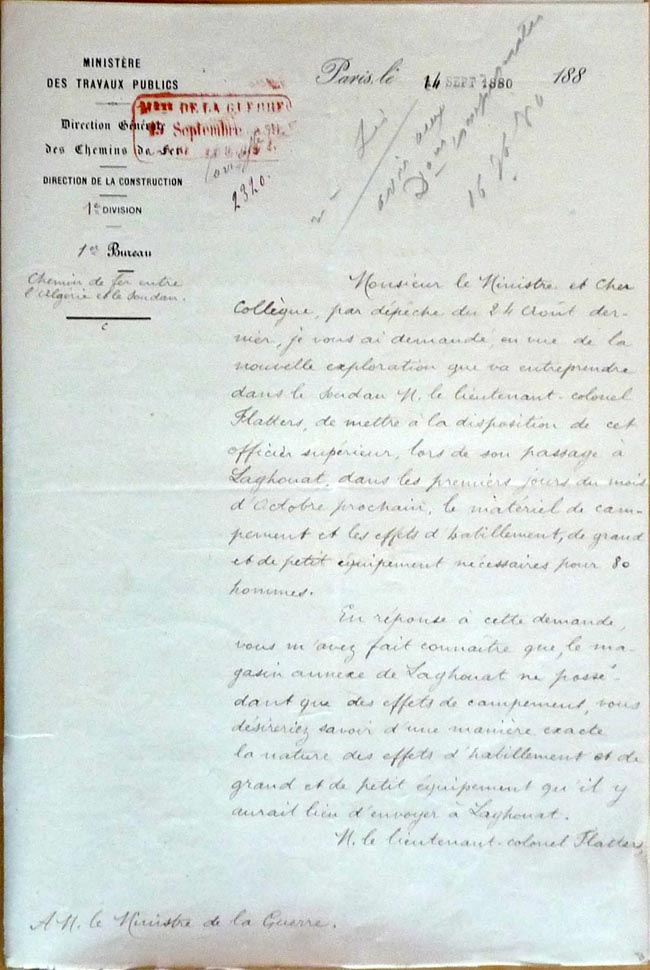 MINISTÈRE
DES TRAVAUX PUBLICS
Direction Générale
des Chemins de Fer
DIRECTION DE LA CONSTRUCTION
1re DIVISION
1er Bureau
Chemin de fer entre
l'Algérie et le Soudan.
Paris, le 14 SEPT 1880 188
Mtère DE LA GUERRE
15 Septembre
2320.
16 7bre 80
Monsieur le Ministre et Cher
Collègue, par dépêche du 24 Août der-
nier, je vous ai demandé, en vue de la
nouvelle exploration que va entreprendre
dans le Soudan M. le lieutenant-colonel
Flatters, de mettre à la disposition de cet
officier supérieur, lors de son passage à
Laghouat, dans les premiers jours du mois
d'Octobre prochain, le matériel de cam-
pement et les effets d'habillement, de grand
et de petit équipement nécessaires pour 80
hommes.
En réponse à cette demande,
vous m'avez fait connaître que, le ma-
gasin annexe de Laghouat ne possé-
dant que des effets de campement, vous
désireriez savoir d'une manière exacte
la nature des effets d'habillement et de
grand et de petit équipement qu'il y
aurait lieu d'envoyer à Laghouat.
M. le lieutenant-colonel Flatters,
A M. le Ministre de la Guerre.